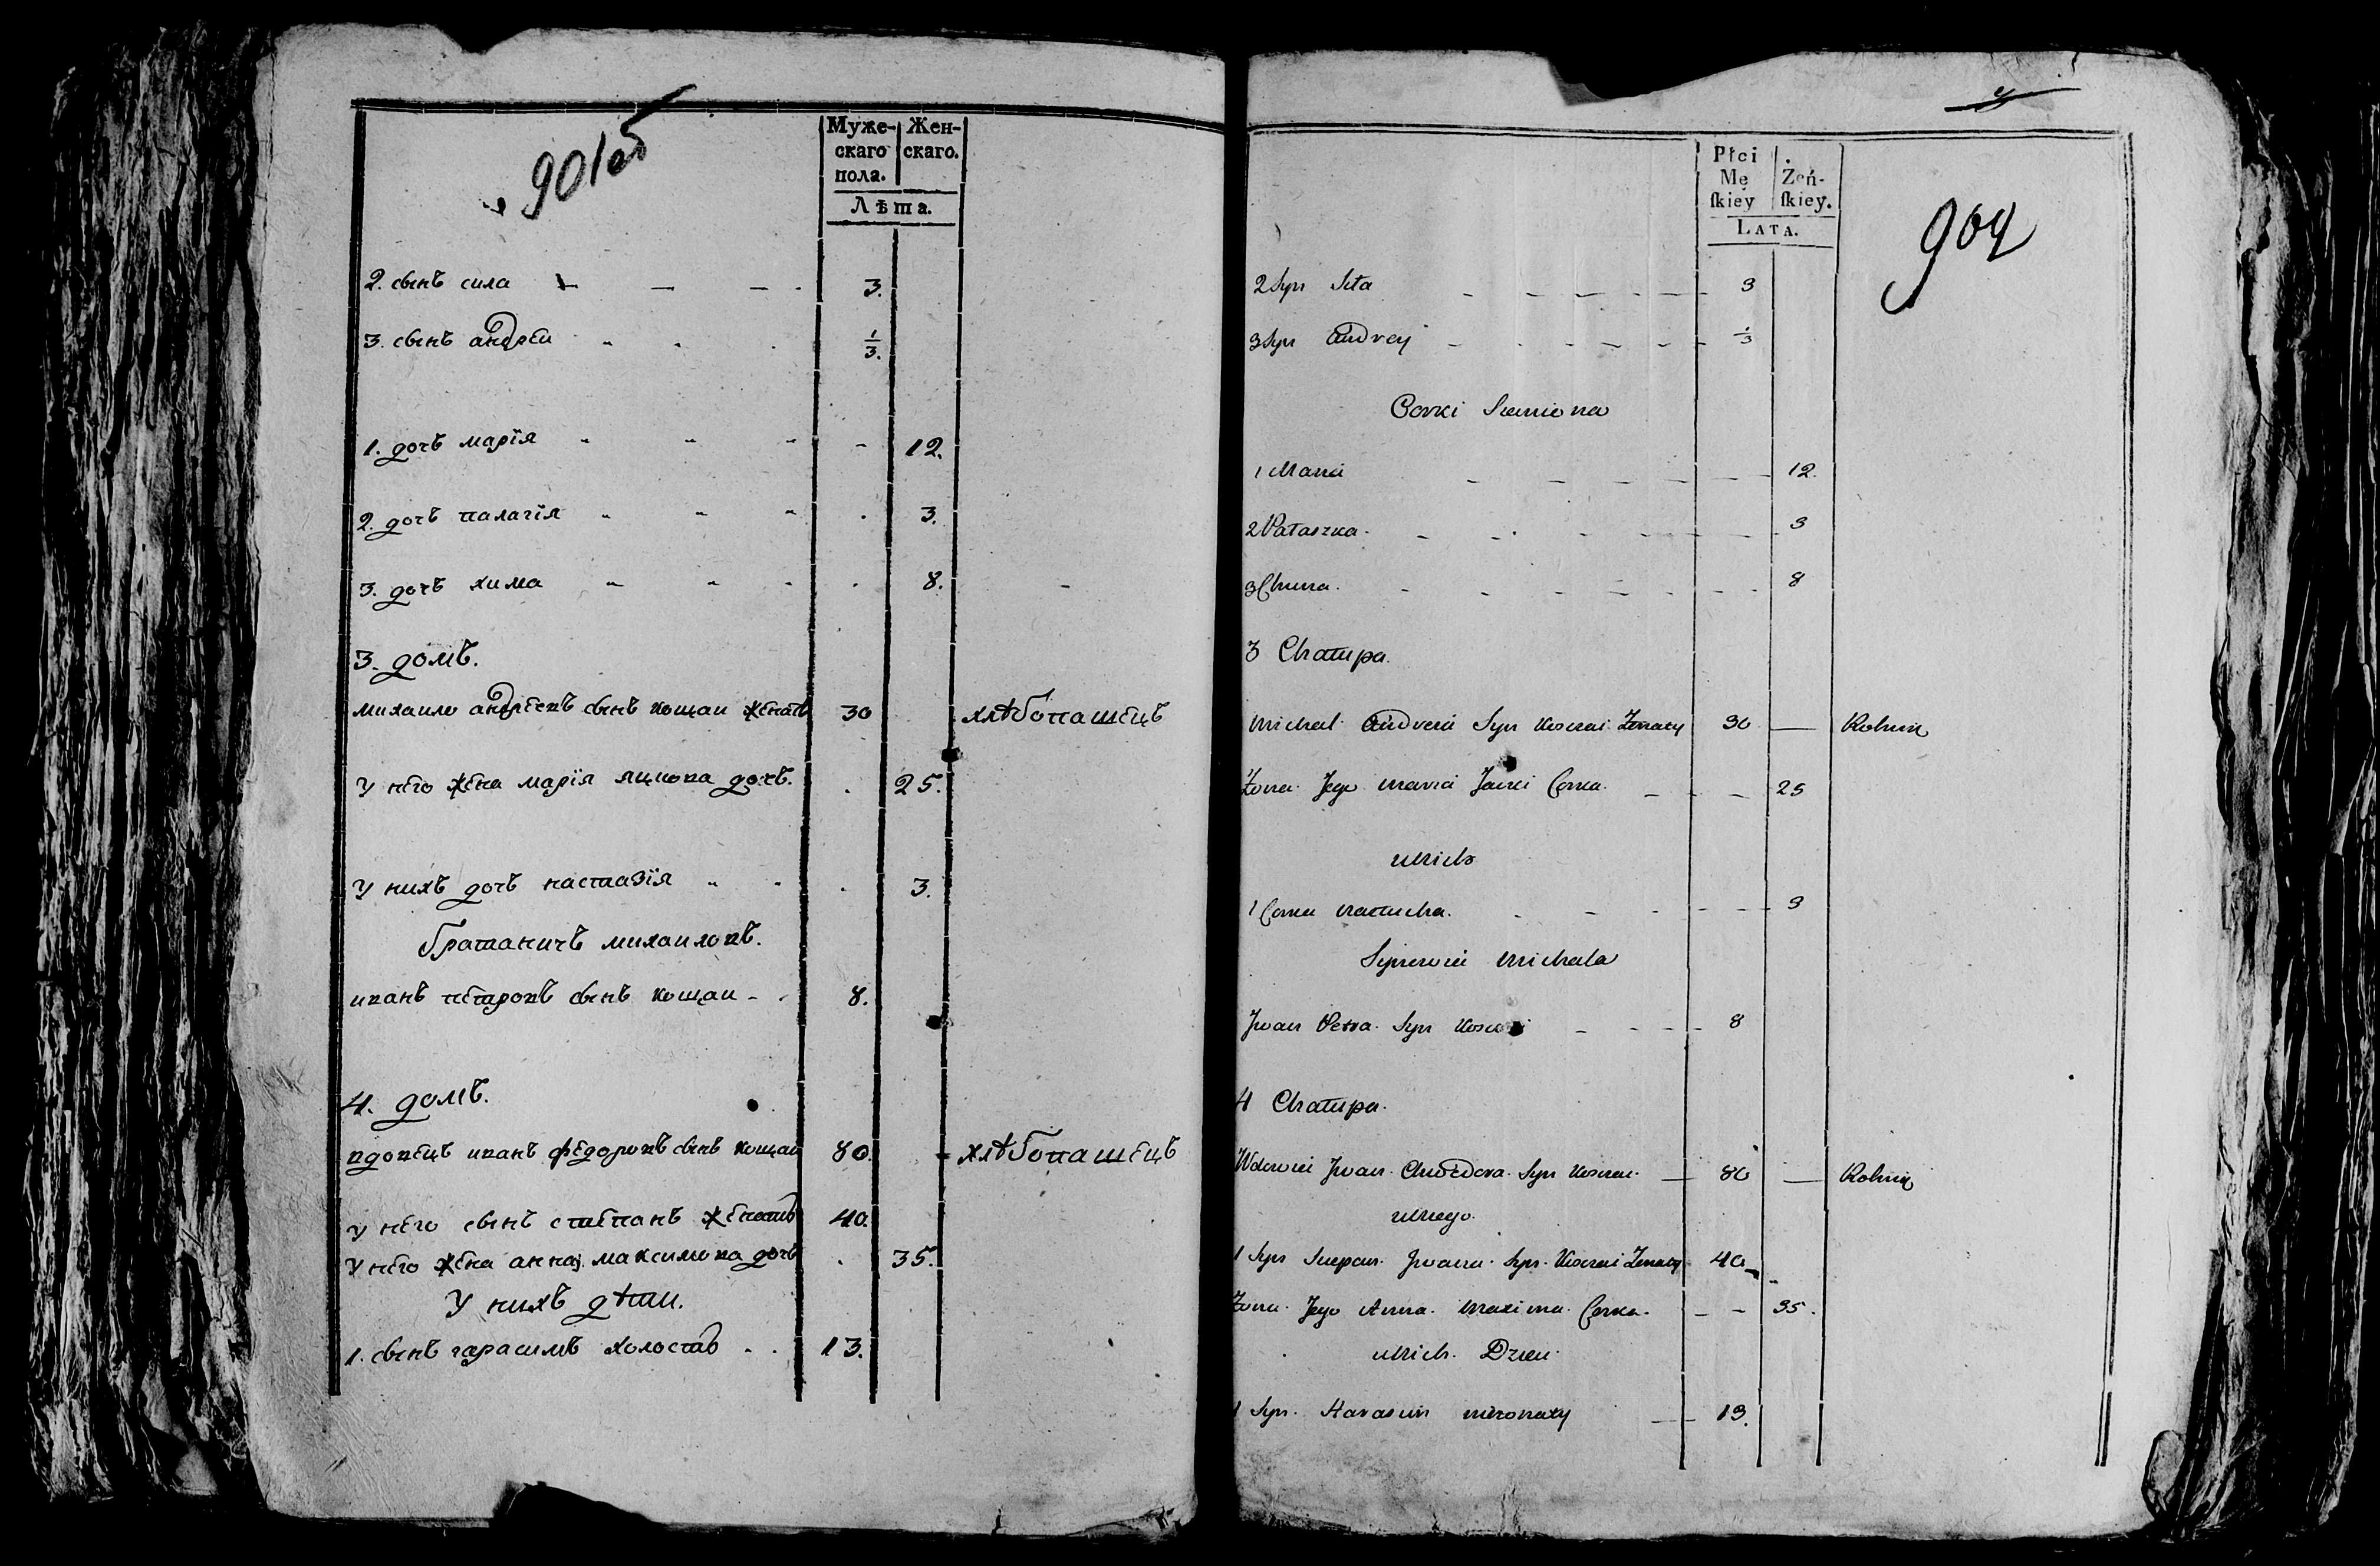 901об
Муже- Жен-
скаго скаго.
пола.
Лѣта.
2. сынъ сила 3.
3. сынъ андреи 1/3.
1. дочъ марїя 12.
2. дочъ палагїя 3.
3. дочъ хима 8.
3. домъ.
михаило андреевъ сынъ кощаи женатъ 30 хлѣбопашецъ
У него жена марїя яцкова дочъ. 25.
У нихъ дочъ настазїя 3.
братаничъ михаиловъ.
иванъ петровъ сынъ кощаи 8.
4. домъ.
вдовецъ иванъ федоровъ сынъ кощаи 80. хлѣбопашецъ
у него сынъ степанъ женатъ 40.
У него жена анна максимова дочъ 35.
У нихъ дѣти.
1. сынъ гарасимъ холостъ 13.
Płci
Mę Żeń-
skiey skiey.
LATA.
904
2 Syn Siła 3
3 Syn Andrey 1/3
Corki Siemiona
1 Maria 12.
2 Pałaszka. 3
3 Chima. 8
3 Chałupa.
Michał Andreia Syn Koszczai Żonaty 30 — Rolnik
Żona Jego Maria Jacki Corka. 25
u Nich
1 Corka Nastucha. 3
Synowiec Michała
Jwan Petra Syn 8
4 Chałupa.
Wdowiec Jwan Chwedora Syn Koszczai 80 — Rolnik
u Niego.
1 Syn Stepan Jwana Syn Koszczai Żonaty 40
Żona Jego Anna Maxima Corka. 35.
u Nich Dzieci
1 Syn Harasim nieżonaty 13.